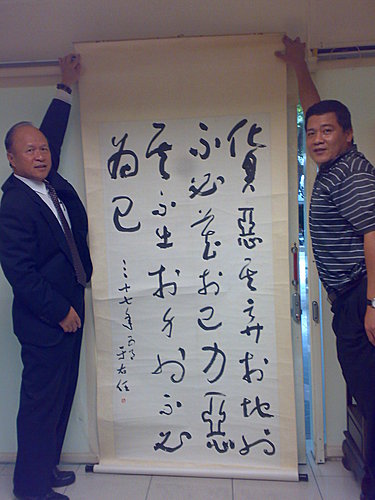 貨惡其棄於地也
不必藏於己力惡
其不出於身也不必
為己
三十七年
于右任